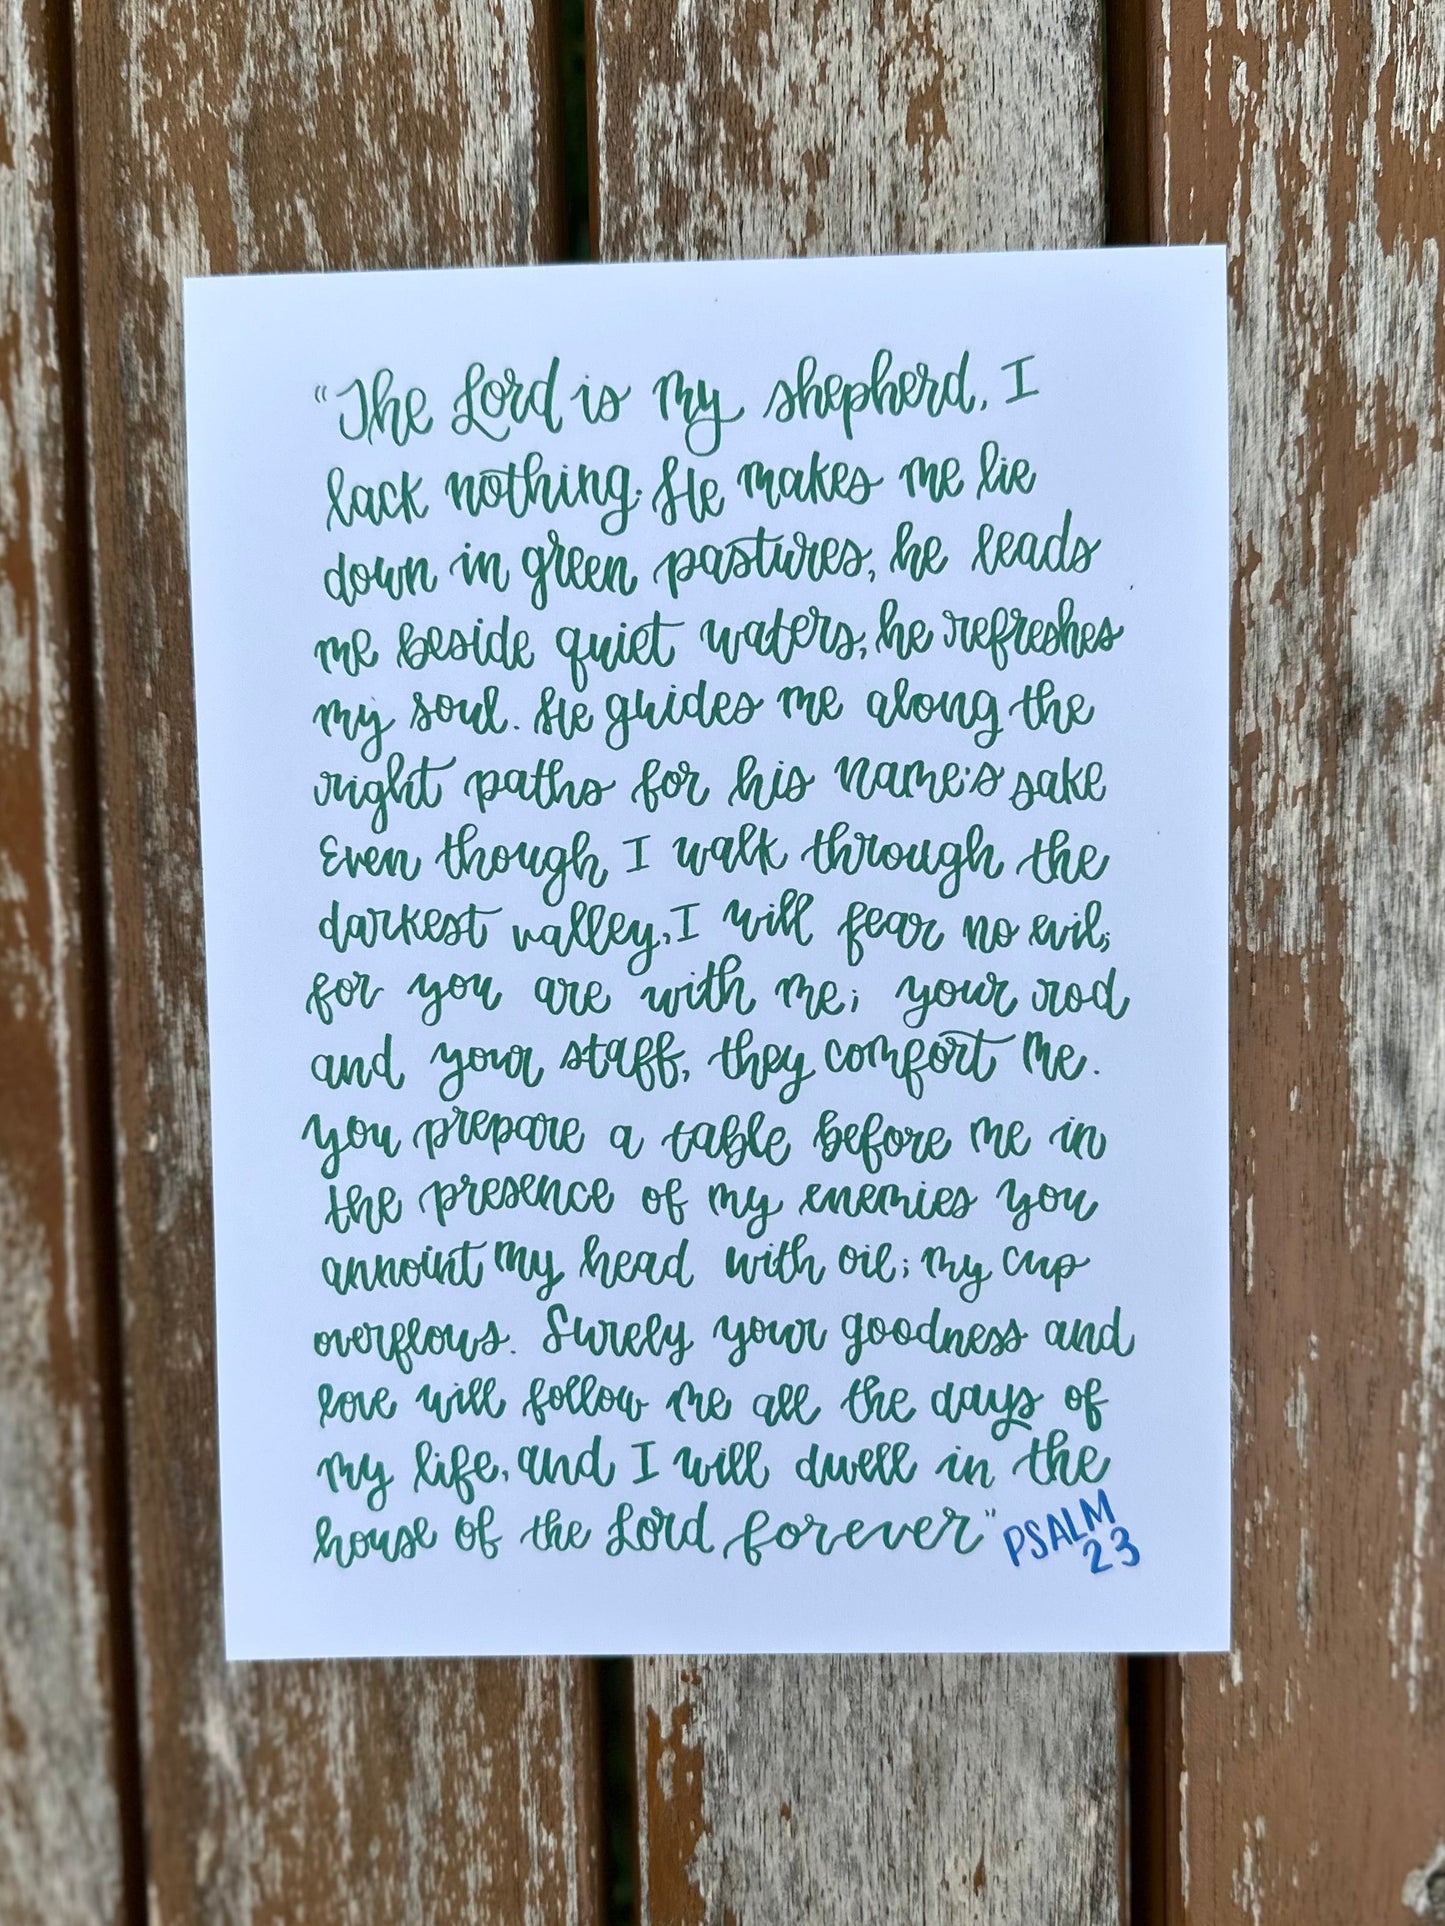 "The Lord is my shepherd, I
lack nothing. He makes me lie
down in green pastures, he leads
me beside quiet waters, he refreshes
my soul. He guides me along the
right paths for his name's sake
Even though I walk through the
darkest valley, I will fear no evil;
for you are with me; your rod
and your staff, they comfort me.
You prepare a table before me in
the presence of my enemies you
annoint my head with oil; my cup
overflows. Surely your goodness and
love will follow me all the days of
my life, and I will dwell in the
house of the Lord forever"
PSALM
23